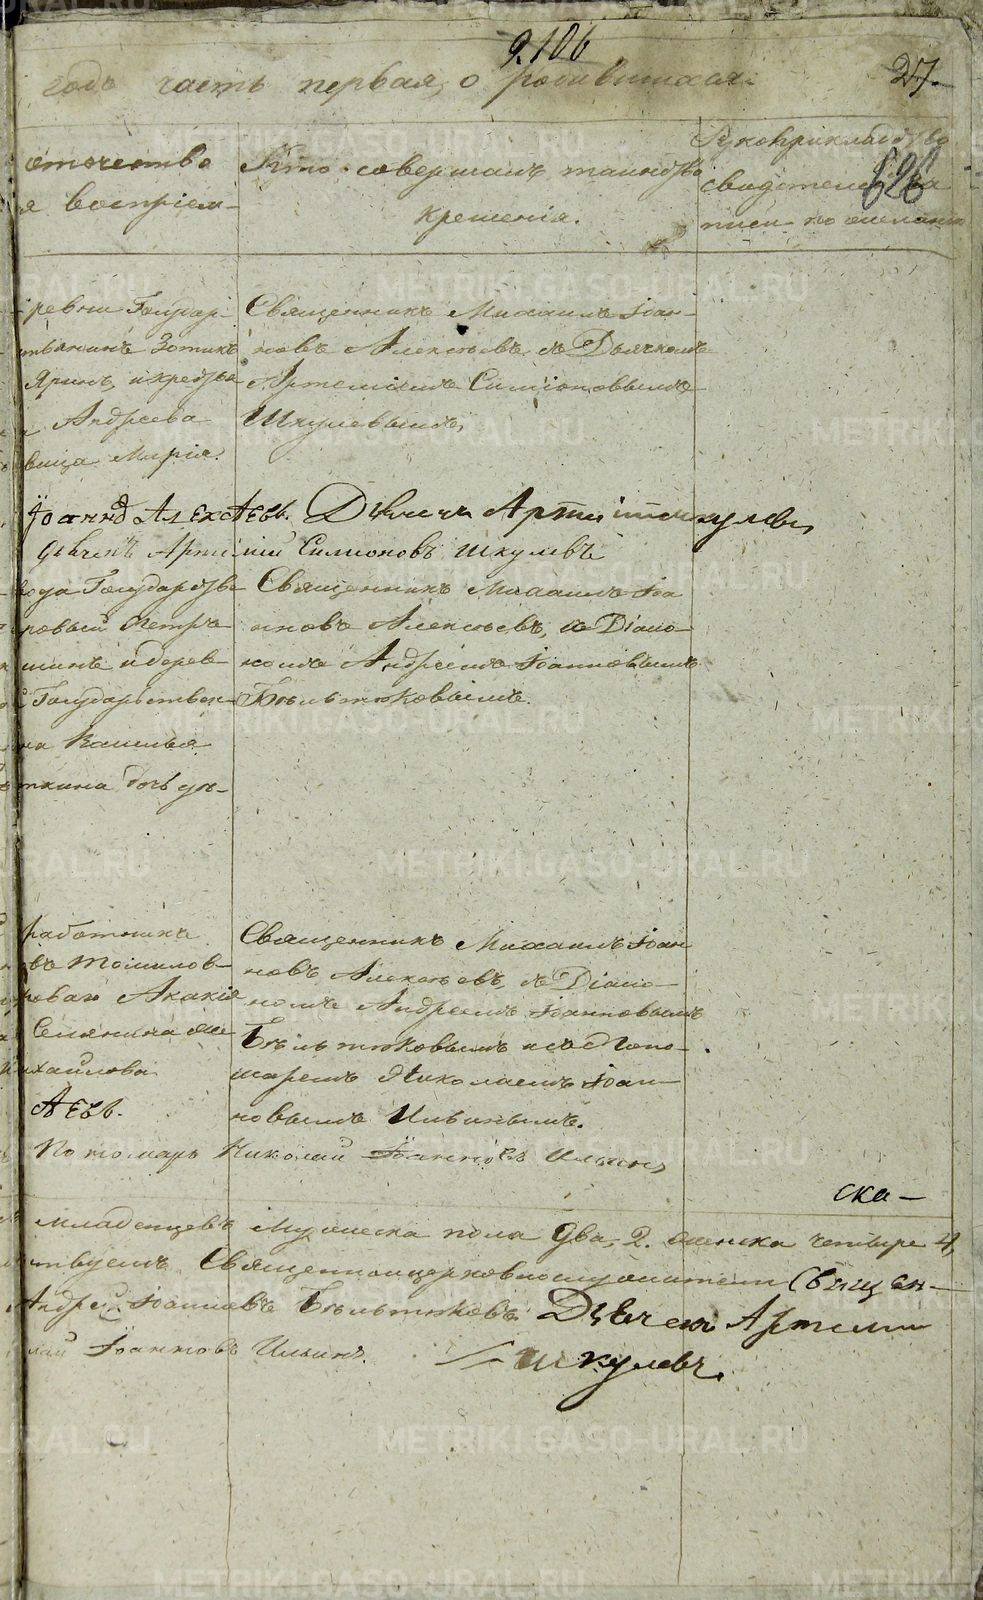 9.106
годъ часть первая, о родившихся.
27.
отечество
я воспріем-
Кто совершалъ таинство
крещенія.
Рукоприкладство
свидетелей за-
писи по желанію
626
ревни Государ-
твянинъ Зотикъ
Яринъ, и крестья
Андреева
вица Марія.
Священникъ Михаилъ Іоан-
новъ Алексѣевъ, съ Дьячкомъ
Артеміемъ Симіоновымъ
Шкулевымъ,
Іоаннъ Алексѣевъ. Дьячекъ Артемій Шкулевъ
дьячекъ Артемій Симионовъ Шкулевъ
вода Государстве
ровый Петръ
шинъ и дерев-
Государствен-
на Василья
ткина дочь дѣ-
Священникъ Михаилъ Іоа
нновъ Алексѣевъ, съ Діако-
номъ Андреемъ Іоанновымъ
Бѣльтюковымъ.
работника
въ Томилов-
роваго Акакія
Семянина же
ихайлова
Священникъ Михаилъ Іоан
новъ Алексѣевъ, съ Діако-
номъ Андреемъ Іоанновымъ
Бѣльтюковымъ и съ Поно-
маремъ Николаемъ Іоан-
новымъ Ильинымъ.
ѣевъ.
Пономарь Николай Іоанновъ Ильинъ
ска-
младенцевъ Мужеска пола два, 2. женска четыре 4,
твуемъ. Священноицерковнослужители Священ-
Андрей Іоанновъ Бѣльтюковъ Дьячекъ Артеми
лай Іоанновъ Ильинъ. Шкулевъ.
METRIKI.GASO-URAL.RU